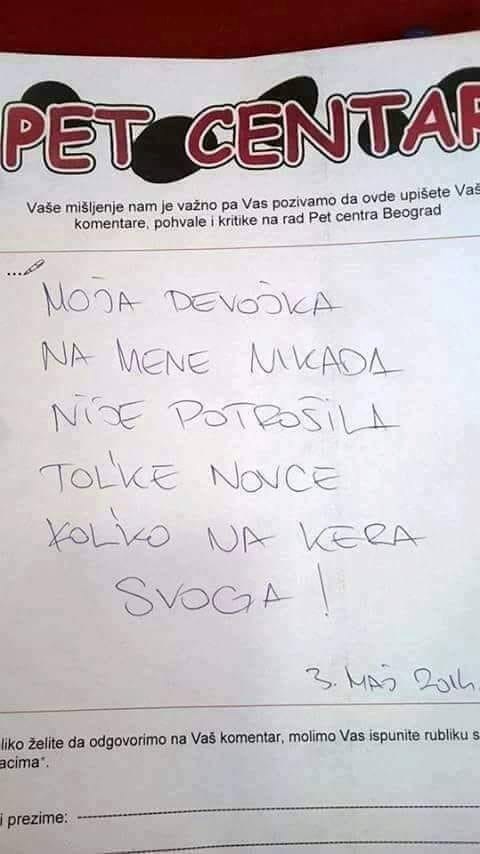 PET CENTAR
Vaše mišljenje nam je važno pa Vas pozivamo da ovde upišete Vaš
komentare, pohvale i kritike na rad Pet centra Beograd
MOJA DEVOJKA
NA MENE NIKADA
NIJE POTROŠILA
TOL'KE NOVCE
KOL'KO NA KERA
SVOGA!
3. MAJ 2014.
liko želite da odgovorimo na Vaš komentar, molimo Vas ispunite rubliku s
acima".
i prezime: